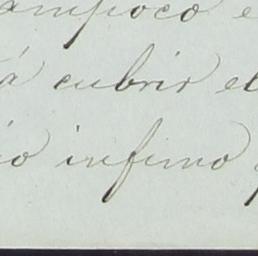 ampoco e
á cubrir el
io infimo